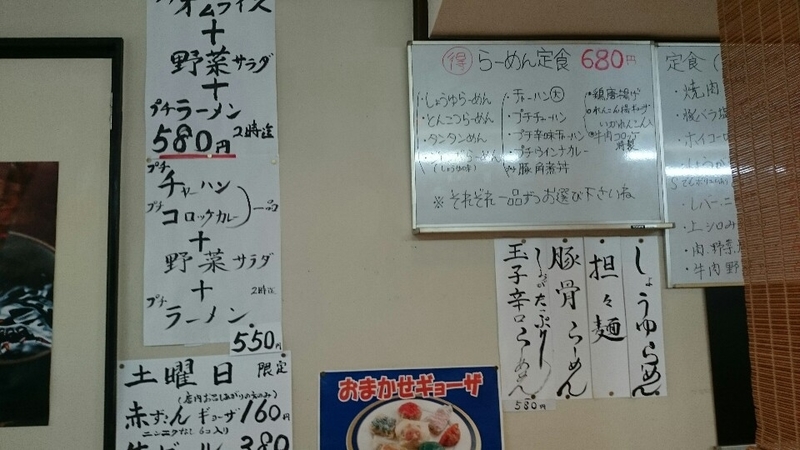 オムライス
+
野菜サラダ
+
プチラーメン
580円 2時迄
プチ チャーハン
プチ コロッケカレー
一品
+
野菜サラダ
+
2時迄
プチ ラーメン
550円
土曜日 限定
赤ずきん ギョーザ 160円
ニンニクなし 6コ入り
380
得 らーめん定食 680円
・しょうゆらーめん
・とんこつらーめん
・タンタンめん
・チャーハン大
・プチチャーハン
・プチ辛味チャーハン
・プチウインナカレー
豚角煮丼
・鶏唐揚げ
・牛肉コロッケ
※それぞれ一品ずつお選び下さいね
定食(
・焼肉
・豚バラ塩
・ホイコーロ
・しょうが
・レバーニ
・上シロみ
・肉野菜
・牛肉野
しょうゆらーめん
担々麺
豚骨らーめん
玉子辛口らーめん
580円
おまかせギョーザ